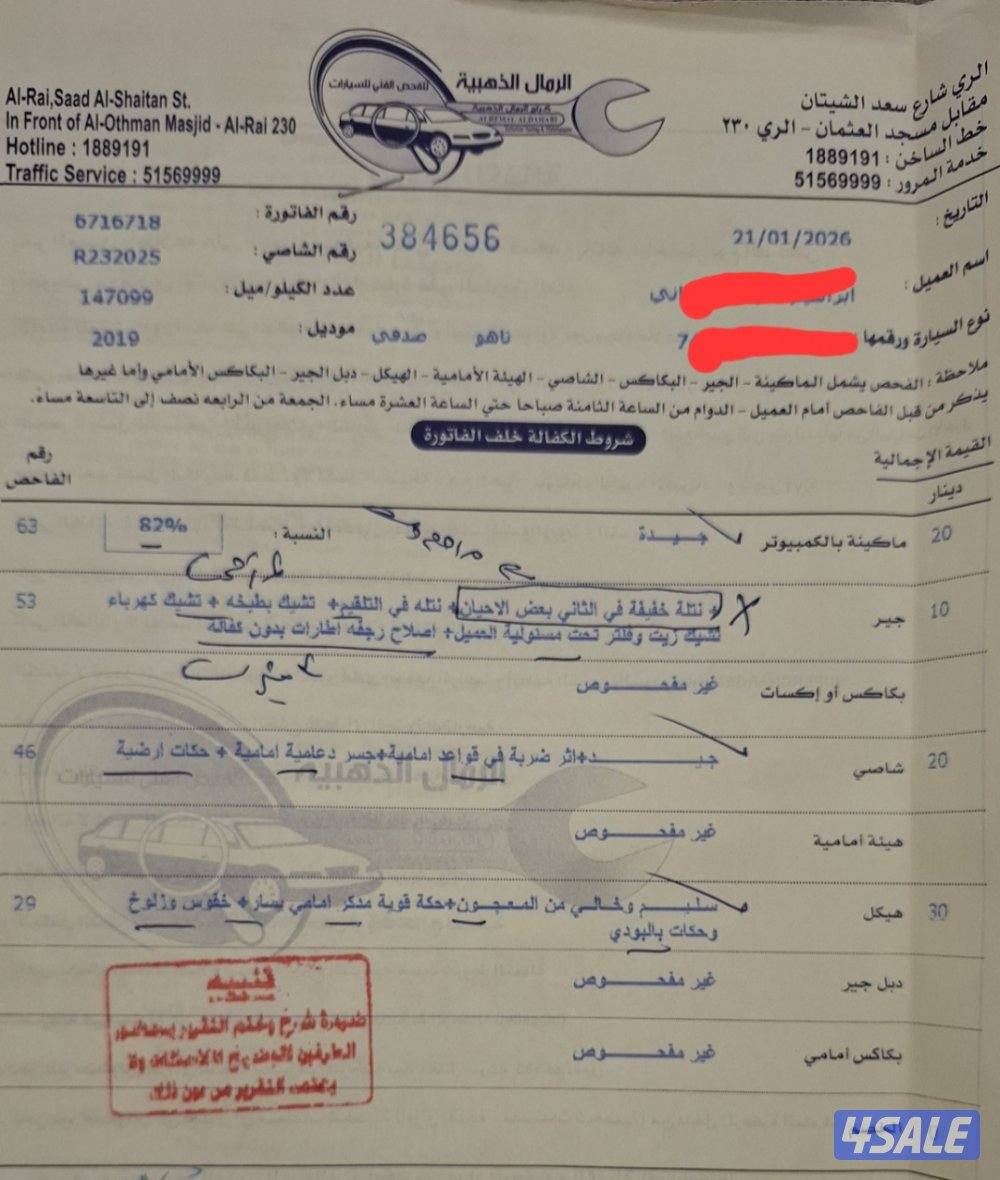 الرمال الذهبية
للفحص الفني للسيارات
كراج الرمال الذهبية
ALREMAL ALDAHABI
Al-Rai,Saad Al-Shaitan St.
In Front of Al-Othman Masjid - Al-Rai 230
Hotline : 1889191
Traffic Service : 51569999
الري شارع سعد الشيتان
مقابل مسجد العثمان - الري ٢٣٠
خط الساخن : 1889191
خدمة المرور : 51569999
التاريخ : 21/01/2026
384656
رقم الفاتورة : 6716718
رقم الشاصي : R232025
اسم العميل :
عدد الكيلو/ميل : 147099
نوع السيارة ورقمها 7 تاهو صدفي
موديل : 2019
ملاحظة : الفحص يشمل الماكينة - الجير - البكاكس - الشاصي - الهيئة الأمامية - الهيكل - دبل الجير - البكاكس الأمامي وأما غيرها
يذكر من قبل الفاحص أمام العميل - الدوام من الساعة الثامنة صباحا حتي الساعة العشرة مساء. الجمعة من الرابعه نصف إلى التاسعة مساءً.
شروط الكفالة خلف الفاتورة
القيمة الإجمالية
دينار
رقم الفاحص
20 ماكينة بالكمبيوتر جيدة النسبة : 82% 63
10 جير + نتلة خفيفة في الثاني بعض الاحيان+ نتله في التلقيم+ تشيك بطبخه + تشيك كهرباء 53
تشيك زيت وفلتر تحت مسئولية العميل+ اصلاح رجفه اطارات بدون كفالة
بكاكس أو إكسات غير مفحوص
20 شاصي جيد+اثر ضربة في قواعد امامية+جسر دعامية امامية + حكات ارضية 46
هيئة أمامية غير مفحوص
30 هيكل سليم وخالي من المعجون+حكة قوية مدكر امامي يسار+ خفوس وزلوخ 29
وحكات بالبودي
دبل جير غير مفحوص
بكاكس أمامي غير مفحوص
تنبيه
4SALE